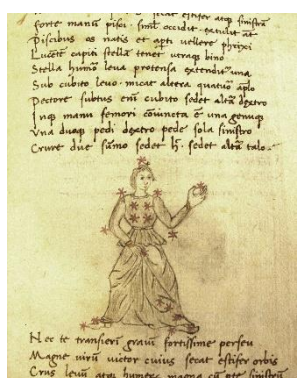 secat estifer atq sinistra
forte manu pisci. simł occidit
Piscibus os natis et apti vellere phrixi
Lucete capiti stella tenet utraq bino
Stella humo leva protensa extendit una
Sub cubito levo. micat altera quatuor aplo
Pectore subtus eni cubito sedet alta dextro
Inq manu femori coniuncta ē una genuq
Vna duaq pedi dextro pede sola sinistro
Crure due sūmo sedet h. sedet altā talo.
Nec te transierī graui fortissime perseu
Magne virū victor cuius secat estifer orbis
Crus leuū atq humerū magna cū sinistrū